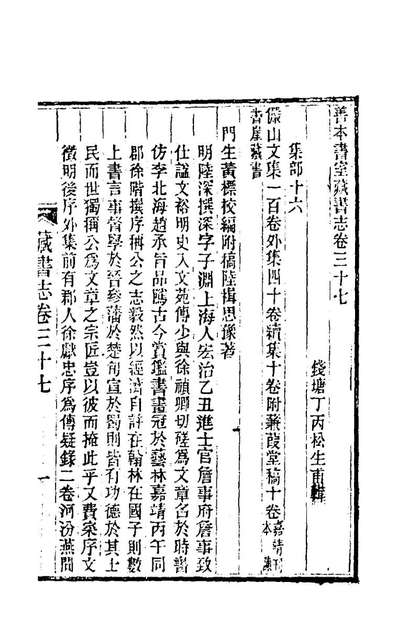 善本書室藏書志卷三十七
錢塘丁丙松生甫輯
集部十六
儼山文集一百卷外集四十卷續集十卷附蒹葭堂稿十卷 嘉靖刊本
書屋藏書
門生黃標校編附稿陸楫思豫著
明陸深撰深字子淵上海人宏治乙丑進士官詹事府詹事致
仕諡文裕明史入文苑傳少與徐禎卿切磋爲文章名於時書
仿李北海趙承旨品隲古今賞鑑書畫冠於藝林嘉靖丙午同
郡徐階撰序稱公之志毅然以經濟自許在翰林在國子則數
上書言事督學於晉參藩於楚旬宣於蜀則皆有功德於其士
民而世獨稱公爲文章之宗匠豈以彼而掩此乎又費寀序文
徵明後序外集前有郡人徐獻忠序爲傳疑錄二卷河汾燕閒
藏書志卷三十七
一